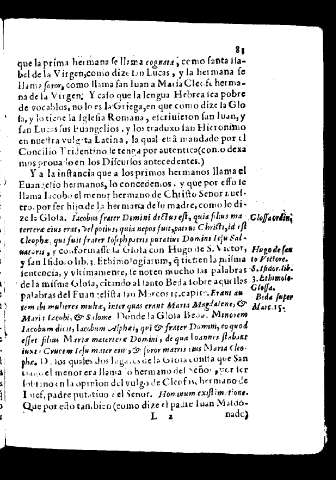 83
que la prima hermana se llama cognata, como santa Isa-
bel de la Virgen, como dize san Lucas, y la hermana se
llama soror, como llama san Iuan a Maria Cleofe herma-
na de la Virgen; Y caso que la lengua Hebrea sea pobre
de vocablos, no lo es la Griega, en que como dize la Glo-
sa, y lo tiene la Iglesia Romana, escriuieron san Iuan, y
san Lucas sus Euangelios, y los traduxo san Hieronimo
en nuestra vulgata Latina, la qual está mandado por el
Concilio Tridentino se tenga por autentica (como dexa
mos prouado en los Discursos antecedentes.)
Y a la instancia que a los primos hermanos llama el
Euangelio hermanos, lo concedemos, y que por esso se
llama Iacobo el menor hermano de Christo Señor nues-
tro, por ser hijo de la hermana de su madre, como lo di-
ze la Glosa. Iacobus frater Domini dictus est, quia filius ma-
terterae eius erat, Vel potius quia nepos fuit patruus Christi, id est
Cleophae, qui fuit frater Ioseph patris putatiuus Domini Iesu Sal-
uatoris, y conforma esse la Glosa con Hugo de S. Victor,
y san Isidoro lib. 1. Ethimologiarum, q̃ tienen la misma
sentencia, y vltimamente, te noten mucho las palabras
de la misma Glosa, citando al santo Beda sobre aquellas
palabras del Euangelista san Marcos 15. capit. Erant au
tem ibi mulieres multae, inter quas erant Maria Magdalene, &
Maria Iacobi, & Salome. Donde la Glosa Beda. Minorem
Iacobum dicit, Iacobum Alphei, qui & frater Domini, eo quod
esset filius Mariae materterae Domini, de qua Ioannes stabant
iuxta Crucem Iesu mater eius, & soror matris eius Maria Cleo-
phe. De los quales dos lugares de la Glosa consta que San
tiago el menor era llamado hermano del Señor, por ser
sobrino en la opinion del vulgo de Cleofas, hermano de
Iosef, padre putatiuo del Señor. Hominum existimatione.
Que por esso tambien (como dize el padre Iuan Maldo-
L 2
nado)
Glossa ordin,
Hugo de san
to Victore.
S. Isidor. lib.
1. Ethimolo-
Glossa.
Beda super
Marc. 15.